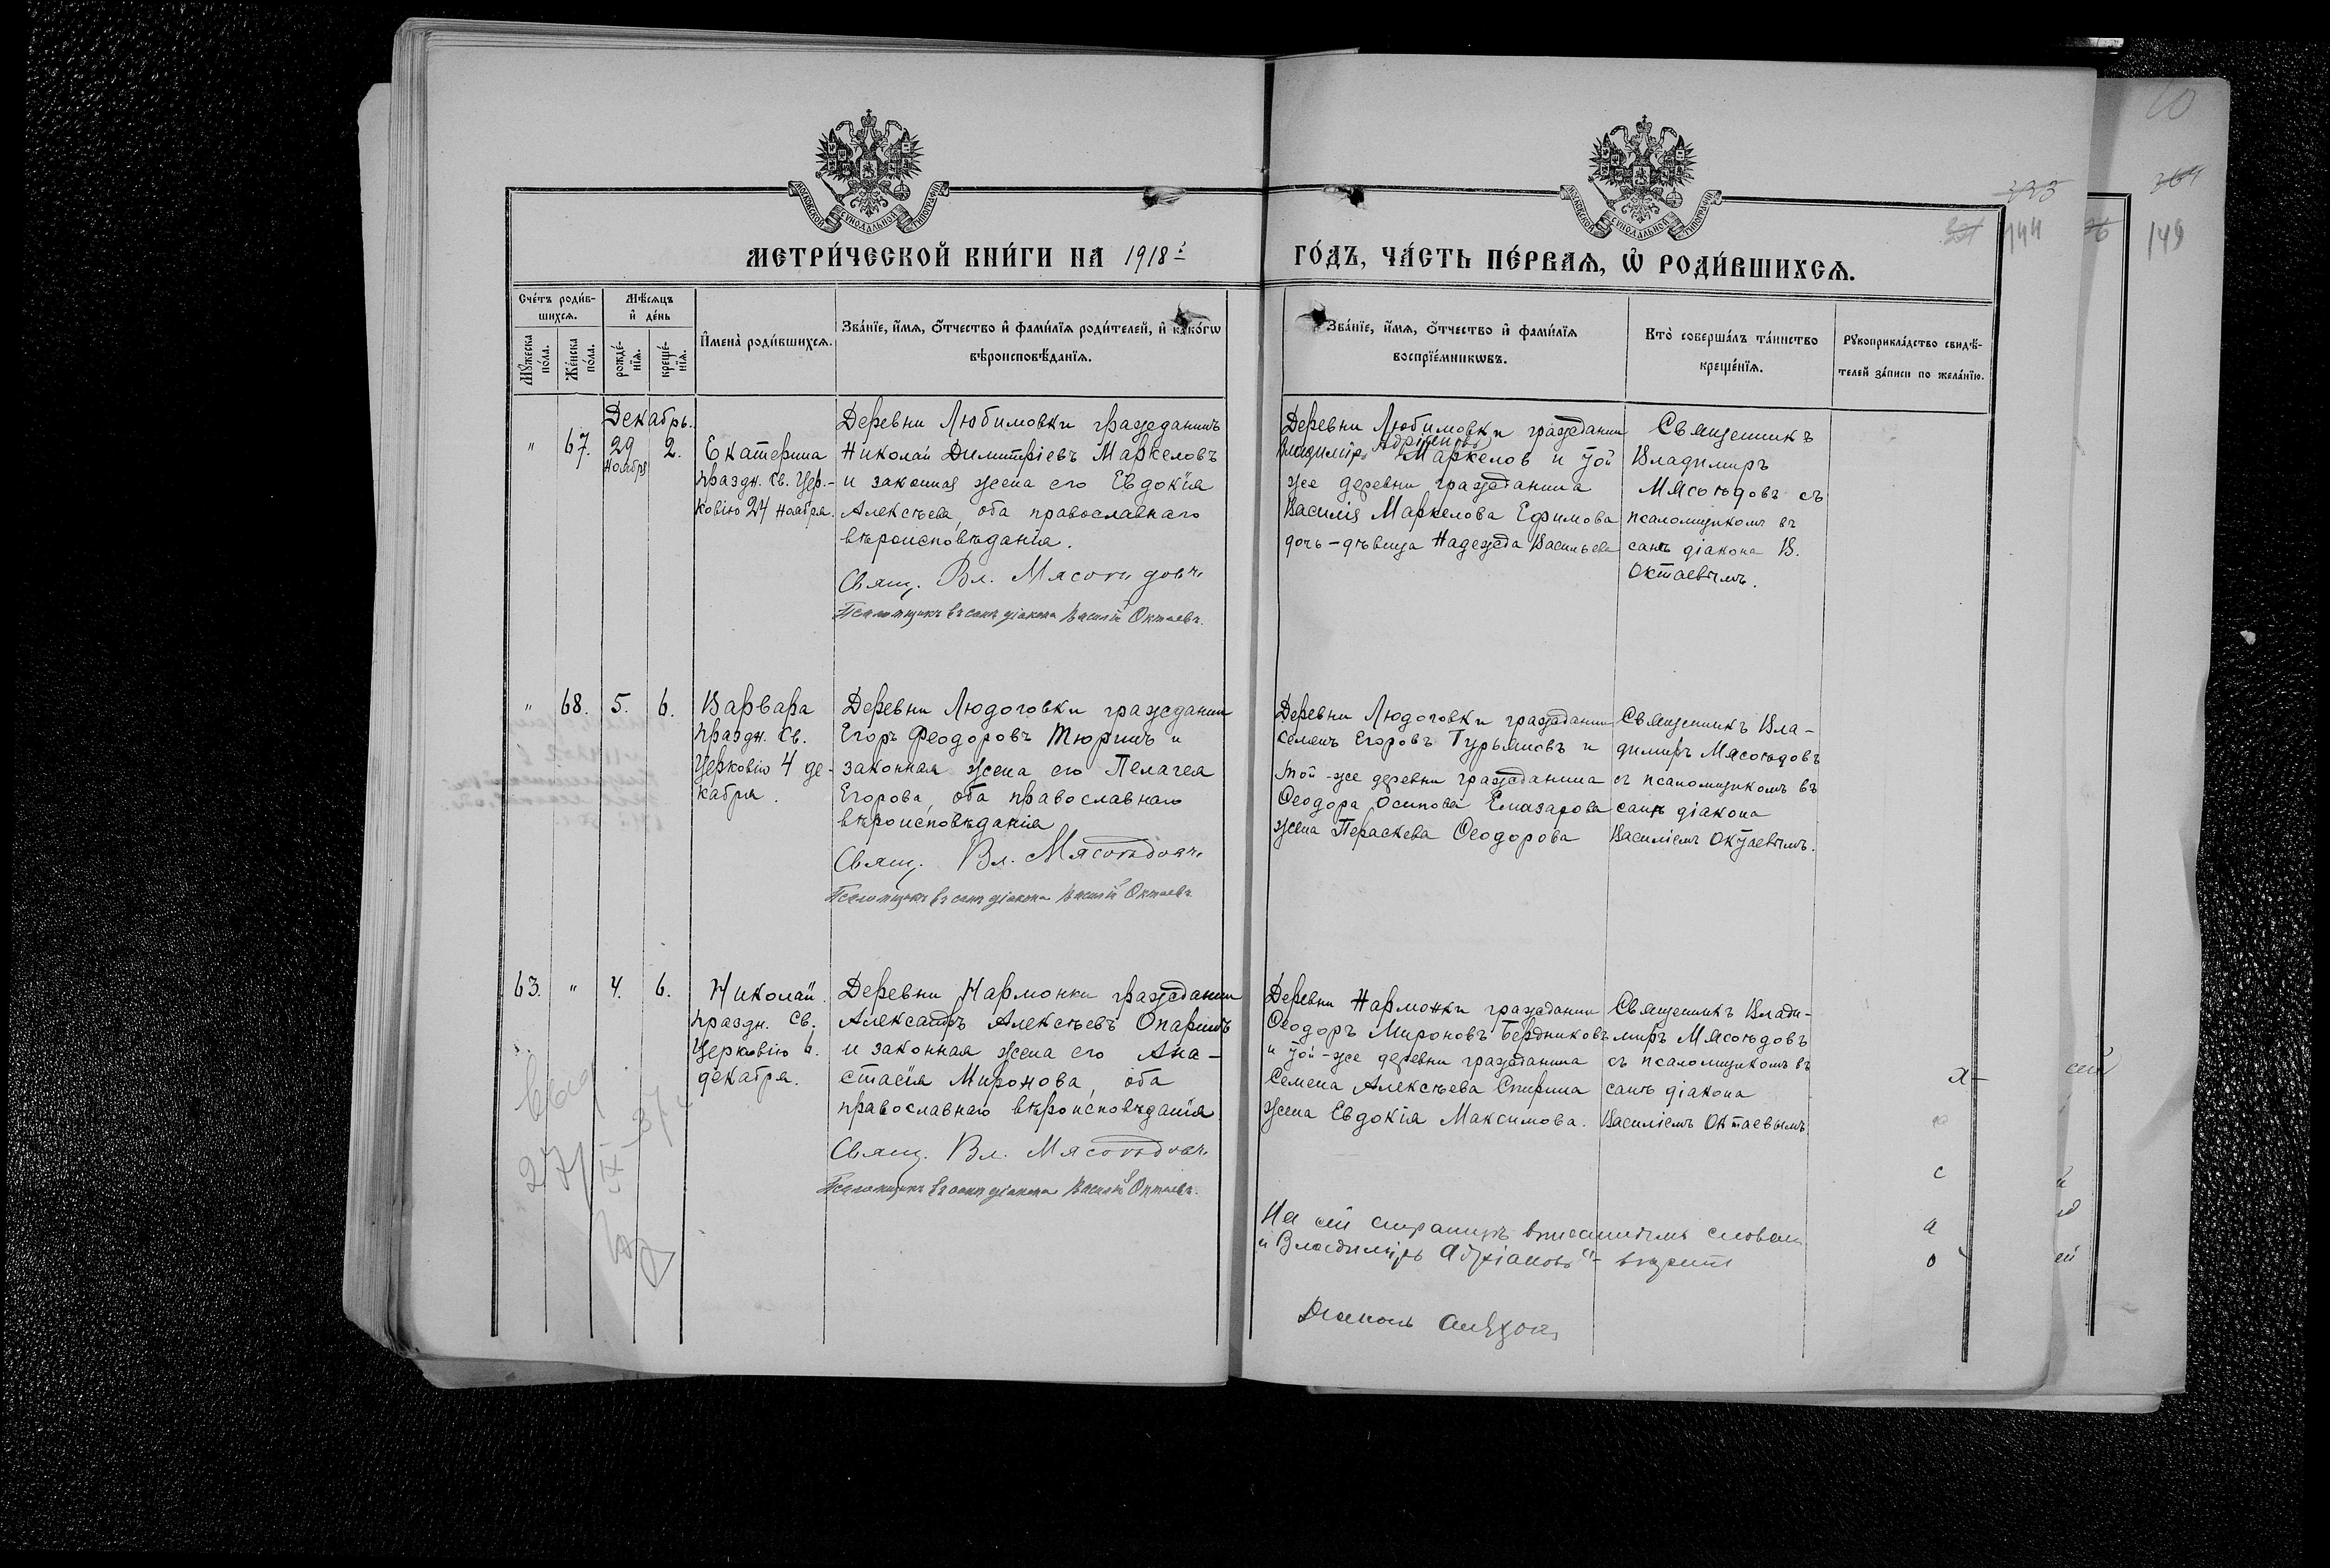 МОСКОВСКОЙ СѴНОДАЛЬНОЙ ТИПОГРАФІИ
МОСКОВСКОЙ СѴНОДАЛЬНОЙ ТИПОГРАФІИ
МЕТРИ́ЧЕСКОЙ КНИ́ГИ НА 1918 й
ГО́ДЪ, ЧА́СТЬ ПЕ́РВАѦ, Ѡ҆ РОДИ́ВШИХСѦ.
144
149
Сче́тъ роди́в-
шихсѧ.
Мꙋ́жеска по́ла.
Же́нска по́ла.
Мѣ́сѧцъ
и҆ де́нь
рожде́-
нїѧ.
креще́-
нїѧ.
И҆мена̀ роди́вшихсѧ.
Зва́нїе, и҆́мѧ, ѻ҆́тчество и҆ фами́лїѧ роди́телей, и҆ како́гѡ
вѣ́роисповѣ́данїѧ.
Зва́нїе, и҆́мѧ, ѻ҆́тчество и҆ фами́лїѧ
воспрїе́мникѡвъ.
Кто̀ соверша́лъ та́инство
креще́нїѧ.
Рꙋкоприкла́дство свидѣ́-
телей за́писи по жела́нїю.
Декабрь.
" 67. 29 2.
Ноября
Екатерина
праздн. Св. Цер-
ковію 24 ноября.
Деревни Любимовки гражданинъ
Николай Димитріевъ Маркеловъ
и законная жена его Евдокія
Алексѣева, оба православнаго
вѣроисповѣданія.
Свящ. Вл. Мясоѣдовъ
Псаломщикъ въ санѣ діакона Василій Октаевъ.
Деревни Любимовки гражданин
Владиміръ Адріановъ
Маркелов и той
же деревни гражданина
Василія Маркелова Ефимова
дочь-дѣвица Надежда Васильева
Священникъ
Владимиръ
Мясоѣдовъ съ
псаломщикомъ въ
санѣ діакона В.
Октаевымъ.
" 68. 5. 6.
Варвара
праздн. Св.
Церковію 4 де-
кабря.
Деревни Людоговки гражданин
Егоръ Феодоровъ Тюринъ и
законная жена его Пелагея
Егорова, оба православнаго
вѣроисповѣданія
Свящ. Вл. Мясоѣдовъ
Псаломщикъ въ санѣ діакона Василій Октаевъ
Деревни Людоговки гражданин
Семенъ Егоровъ Гурьяновъ и
той-же деревни гражданина
Ѳеодора Осипова Елиазарова
жена Пераскева Ѳеодорова
Священникъ Вла-
димиръ Мясоѣдовъ
съ псаломщикомъ въ
санѣ діакона
Василіемъ Октаевымъ.
63. " 4. 6.
Николай
праздн. Св.
Церковію 6.
декабря.
Деревни Нармонки гражданин
Александръ Алексѣевъ Опаринъ
и законная жена его Ана-
стасія Миронова, оба
православнаго вѣроисповѣданія
Свящ. Вл. Мясоѣдовъ
Псаломщикъ въ санѣ діакона Василій Октаевъ.
Деревни Нармонки гражданин
Ѳеодоръ Мироновъ Бердниковъ
и той-же деревни гражданина
Семена Алексѣева Спирина
жена Евдокія Максимова.
Священникъ Влади-
миръ Мясоѣдовъ
съ псаломщикомъ въ
санѣ діакона
Василіемъ Октаевымъ
27/IX-37
На сей страницѣ вписаннымъ словамъ
"Владиміръ Адріановъ" - вѣрить